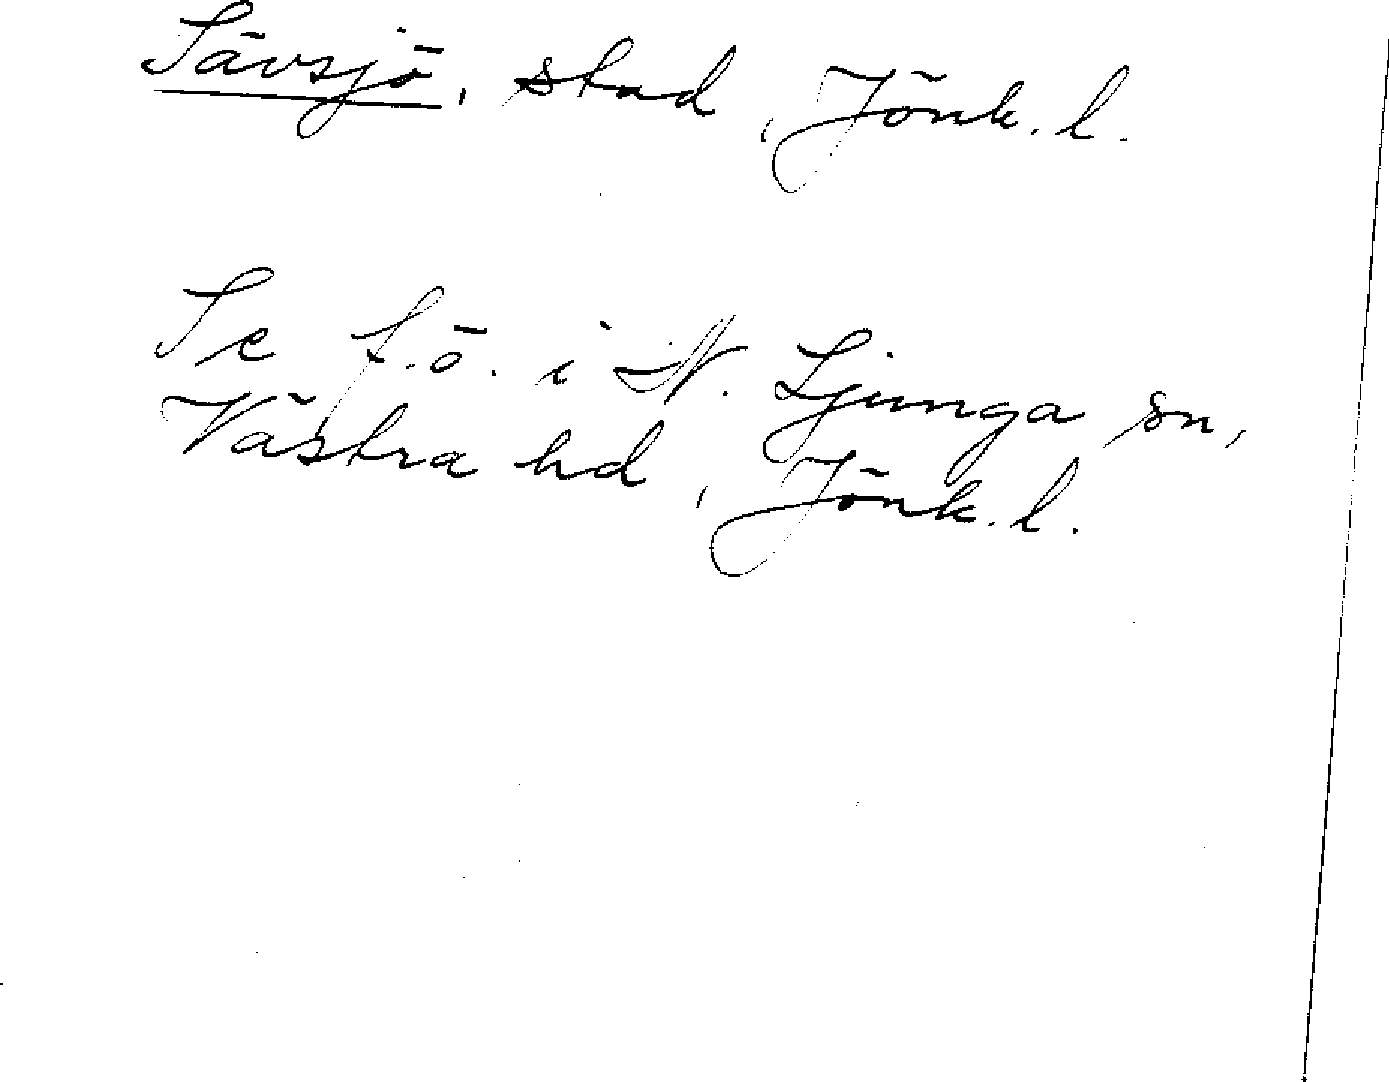 Sävsjö, stad, Jönk. l.
Se f.ö. i N. Ljunga sn,
Västra hd, Jönk. l.